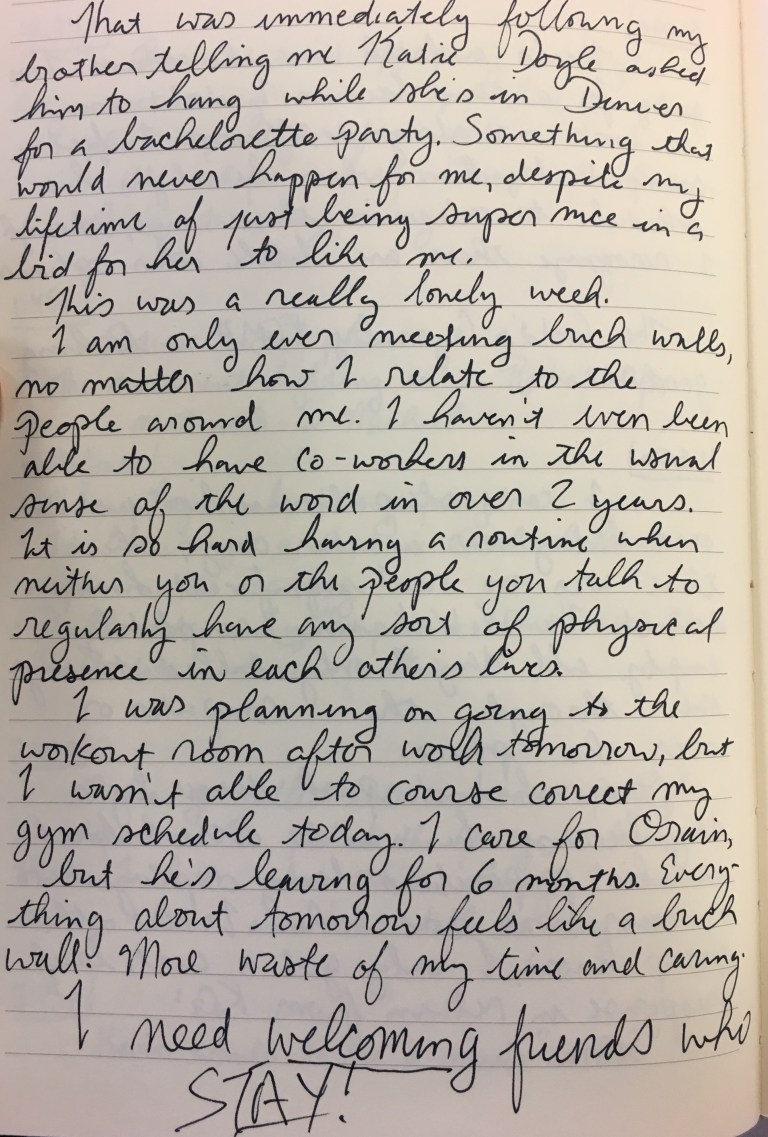 That was immediately following my
brother telling me Katie Doyle asked
him to hang while she's in Denver
for a bachelorette party. Something that
would never happen for me, despite my
lifetime of just being super nice in a
bid for her to like me.
This was a really lonely week.
I am only ever meeting brick walls,
no matter how I relate to the
people around me. I haven't even been
able to have co-workers in the usual
sense of the word in over 2 years.
It is so hard having a routine when
neither you or the people you talk to
regularly have any sort of physical
presence in each other's lives.
I was planning on going to the
workout room after work tomorrow, but
I wasn't able to course correct my
gym schedule today. I care for Osain,
but he's leaving for 6 months. Every-
thing about tomorrow feels like a brick
wall. More waste of my time and caring.
I need welcoming friends who
STAY!